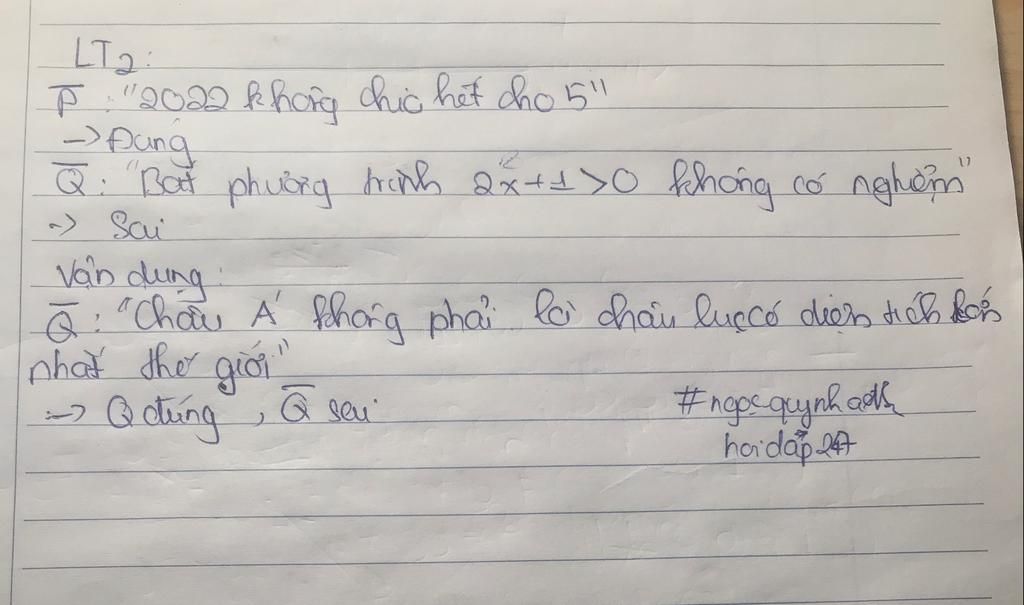 LT2:
P̅: "2022 không chia hết cho 5"
→ Đúng
Q̅: "Bất phương trình 2x+1>0 không có nghiệm"
→ Sai
Vận dụng:
Q̅: "Châu Á không phải là châu lục có diện tích lớn
nhất thế giới"
→ Q đúng, Q̅ sai
#ngocquynhadk
hoidap247